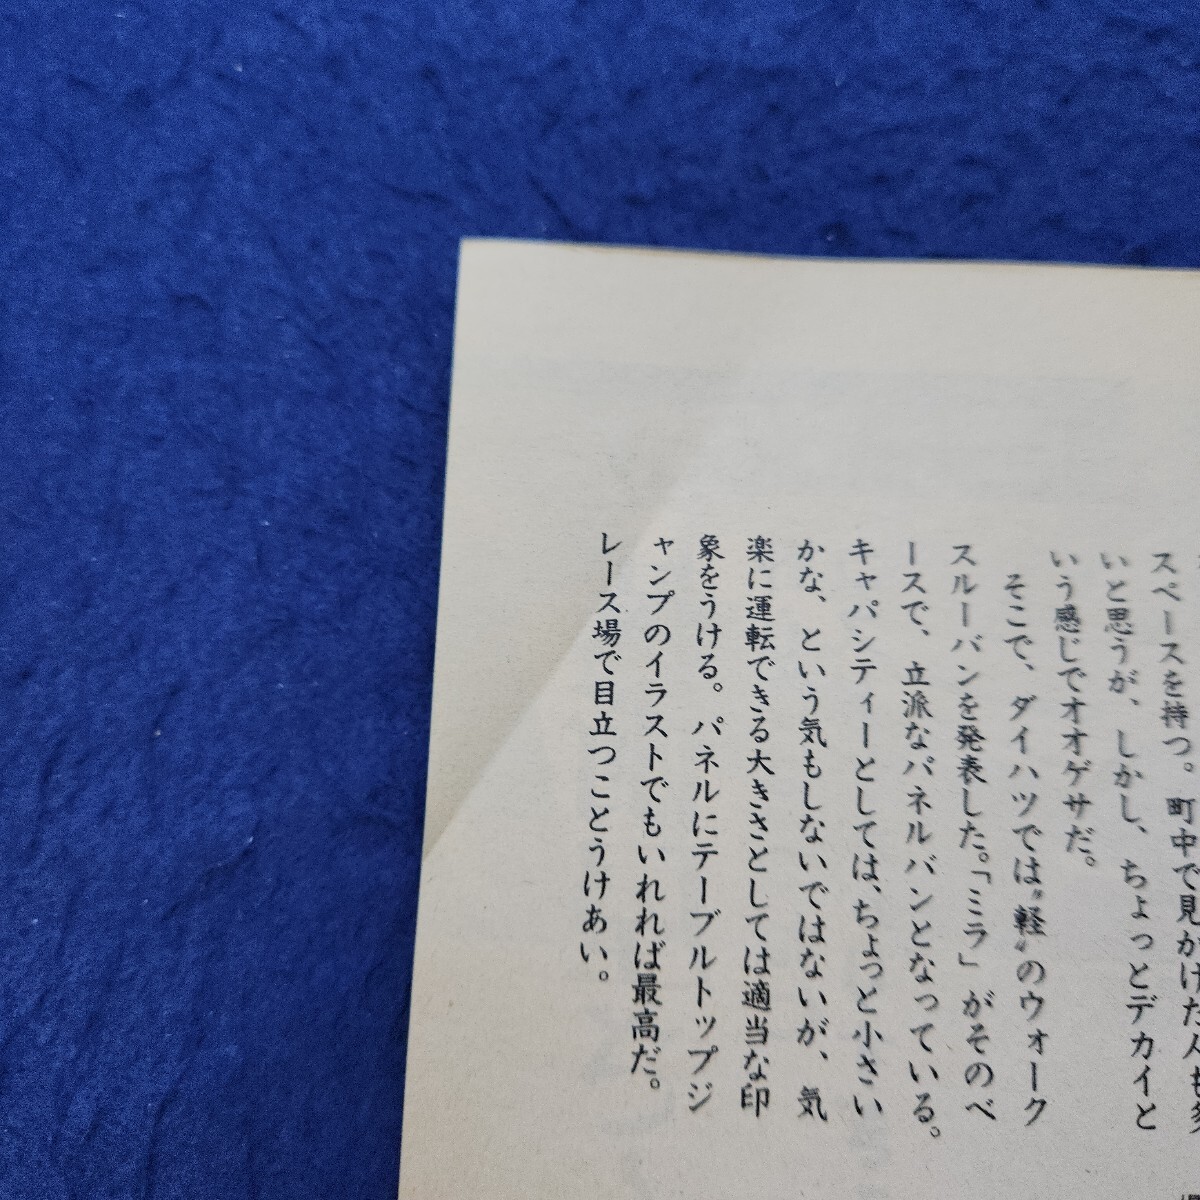 スペースを持つ。町中で見かけた人も多
いと思うが、しかし、ちょっとデカイと
いう感じでオオゲサだ。
そこで、ダイハツでは〝軽〟のウォーク
スルーバンを発表した。「ミラ」がそのベ
ースで、立派なパネルバンとなっている。
キャパシティーとしては、ちょっと小さい
かな、という気もしないではないが、気
楽に運転できる大きさとしては適当な印
象をうける。パネルにテーブルトップジ
ャンプのイラストでもいれれば最高だ。
レース場で目立つことうけあい。